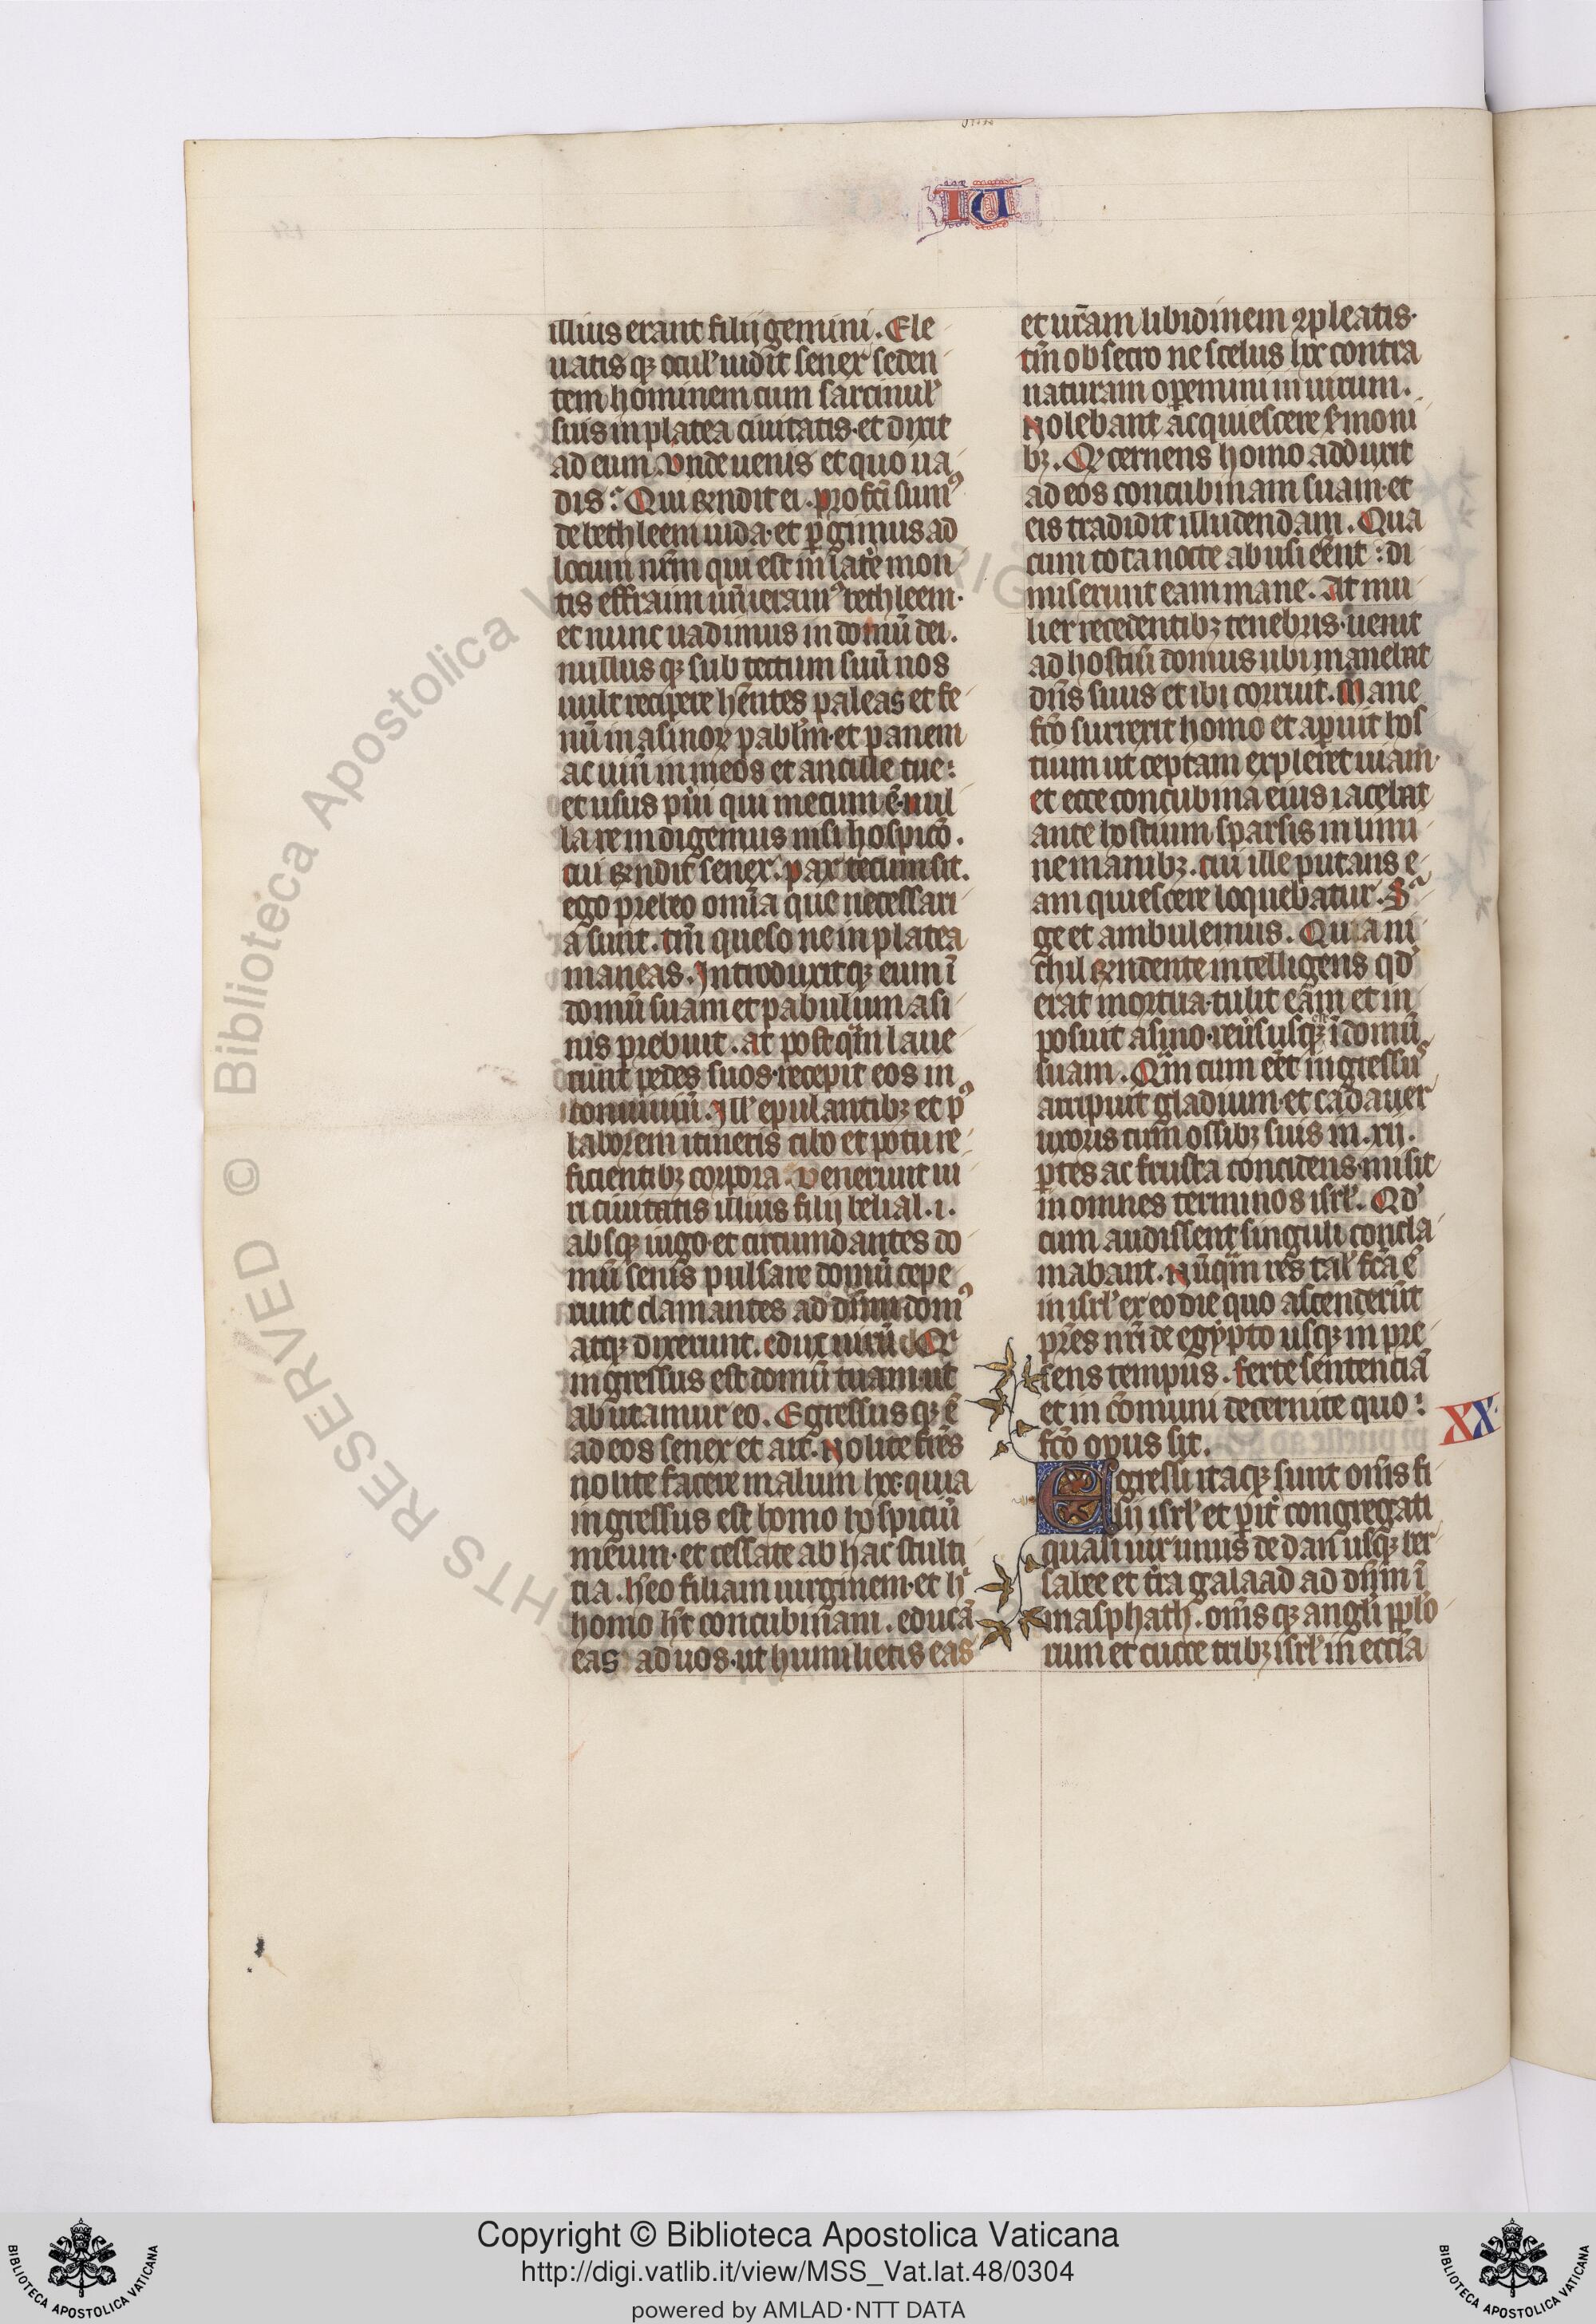 IU
illius erant filij gemini. Ele
uatisqꝫ ocul' uidit senex seden
tem hominem cum sarcinul'
suis in platea ciuitatis. et dixit
ad eum. Unde uenis et quo ua
dis? Qui rñdit ei. profcī sumꝰ
de bethleem iuda. et ꝑgimus ad
locum nr̄m qui est in latere mon
tis effraim un̄ ieramꝰ bethleem.
et nunc uadimus in domū dei.
nullusqꝫ sub tectum suū nos
uult recipere hn̄tes paleas et fe
nū in asinoꝝ pabl'm. et panem
ac uinū in meos et ancille tue:
et usus pu'i qui mecum ē. nul
la re indigemus nisi hospicō.
cui rñdit senex. pax tecum sit.
ego prebeo omīa que necessari
a sunt. tm̄ queso ne in platea
maneas. Introduxitqꝫ eum ī
domū suam et pabulum asi
nis prebuit. at postqm̄ laue
runt pedes suos. recepit eos in
conuiuiū. Ill' epulantibꝫ et pꝰ
laborem itineris cibo et potu re
ficientibꝫ corpora. Venerunt ui
ri ciuitatis illius filij belial. i.
absqꝫ iugo. et circumdantes do
mū senis pulsare domū cepe
runt clamantes ad dn̄um domꝰ
atqꝫ dixerunt. educ uirū Qi
ingressus est domū tuam. ut
abutamur eo. Egressusqꝫ ē
ad eos senex et ait. Nolite fr̄es
nolite facere malum hoc. quia
ingressus est homo hospiciū
meum. et cessate ab hac stulti
cia. h'eo filiam uirginem. et h'
homo h't concubinam. educā
eas ad uos. ut humilietis eas
et ur̄am libidinem ꝯpleatis.
tm̄ obsecro ne scelus hoc contra
naturam oꝑemini in uirum.
Nolebant acquiescere s'moni
bꝫ. Qꝫ cernens homo adduxit
ad eos concubinam suam. et
eis tradidit illudendam. Qua
cum tota nocte abusi eēnt: di
miserunt eam mane. At mu
lier recedentibꝫ tenebris. uenit
ad hostiū domus ubi manebat
dn̄s suus et ibi corruit. Mane
fcō surrexit homo et aperuit hos
tium ut ceptam expleret uiam.
et ecce concubina eius iacebat
ante hostium sparsis in limi
ne manibꝫ. cui ille putans e
am quiescere loquebatur. Sur
ge et ambulemus. Qua ni
chil rñdente intelligens qd'
erat mortua. tulit eam et in
posuit asino. reu'susqꝫ est ī domū
suam. Qm̄ cum eēt ingressus
arripuit gladium. et cadauer
uxoris cum ossibꝫ suis in .xii.
ꝑtes ac frusta concidens. misit
in omnes terminos isrl'. Qd'
cum audissent singuli concla
mabant. Nūqm̄ res tal' fcā ē
in isrl' ex eo die quo ascenderūt
pr̄es nr̄i de egypto usqꝫ in pre
sens tempus. ferte sentenciā
et in cōmuni decernite quo:
fcō opus sit.
XX.
Egressi itaqꝫ sunt oms̄ fi
lij isrl' et pit' congregati
quasi uir unus de dan usqꝫ ber
sabee et t'ra galaad ad dn̄m ī
masphath. oms̄qꝫ angli pplo
rum et cuncte tribꝫ isrl' in eccl'a
© Biblioteca Apostolica V RIGHTS RESERVED
Copyright © Biblioteca Apostolica Vaticana
http://digi.vatlib.it/view/MSS_Vat.lat.48/0304
powered by AMLAD·NTT DATA
BIBLIOTECA APOSTOLICA VATICANA
BIBLIOTECA APOSTOLICA VATICANA